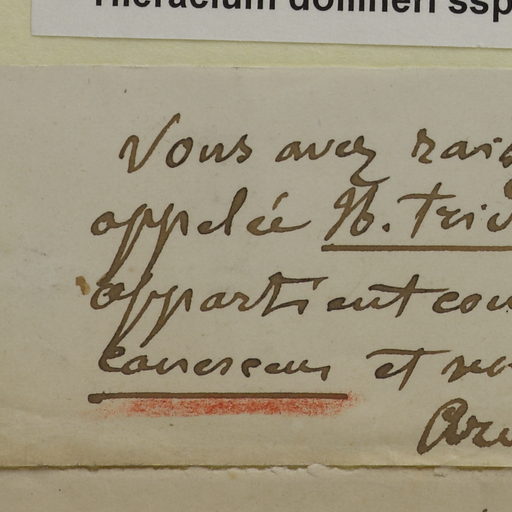 Hieracium dollineri ssp
Vous avez rais
appelée H. trid
appartient com
canescens et no
Aru